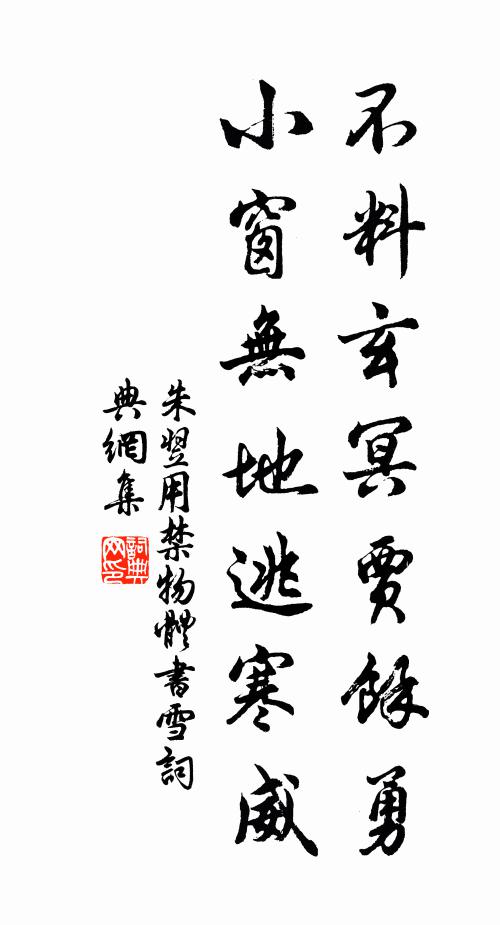 不料玄冥賈餘勇
小窗無地逃寒威
朱翌用禁物體書雪詞
典網集
詞典網印